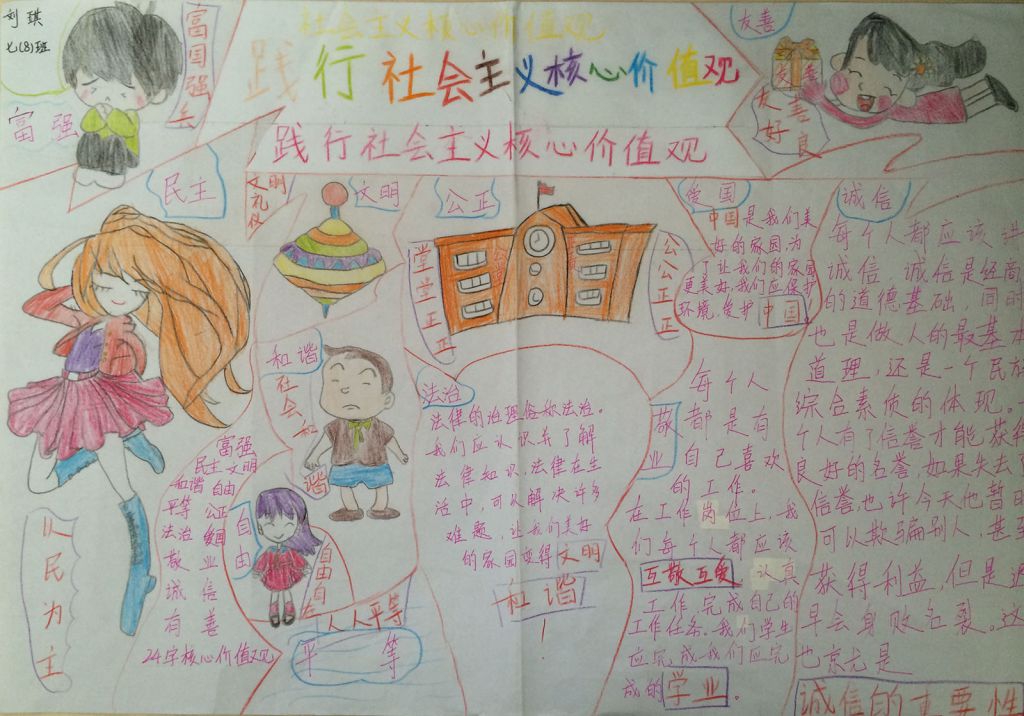 刘琪
七(8)班
富强
富国强兵
社会主义核心价值观
践行社会主义核心价值观
践行社会主义核心价值观
友善
友善
友善
好良
民主
以民为主
文明
礼仪
文明
公正
堂堂正正
公公正正
和谐
社会和谐
富强
民主文明
和谐 自由
平等 公正
法治 爱国
敬业
诚信
有善
24字核心价值观
自由
自由自在
人人平等
平等
法治
法律的治理俗称法治。
我们应认识并了解
法律知识,法律在生
活中,可以解决许多
难题,让我们美好
的家园变得文明
和谐
!
爱国
中国是我们美
好的家园,为
了让我们的家园
更美好,我们应保护
环境,爱护中国
敬业
每个人
都是有
自己喜欢
的工作。
在工作岗位上,我
们每个人都应该
互敬互爱 认真
工作,完成自己的
工作任务。我们学生
应完成我们应完
成的学业。
诚信
每个人都应该讲
诚信 诚信是经商
的道德基础,同时
也是做人的最基本
道理,还是一个民族
综合素质的体现。
个人有了信誉才能获得
良好的名誉,如果失去了
信誉,也许今天他暂时
可以欺骗别人,甚至
获得利益,但是迟
早会身败名裂。这
也就是
诚信的重要性